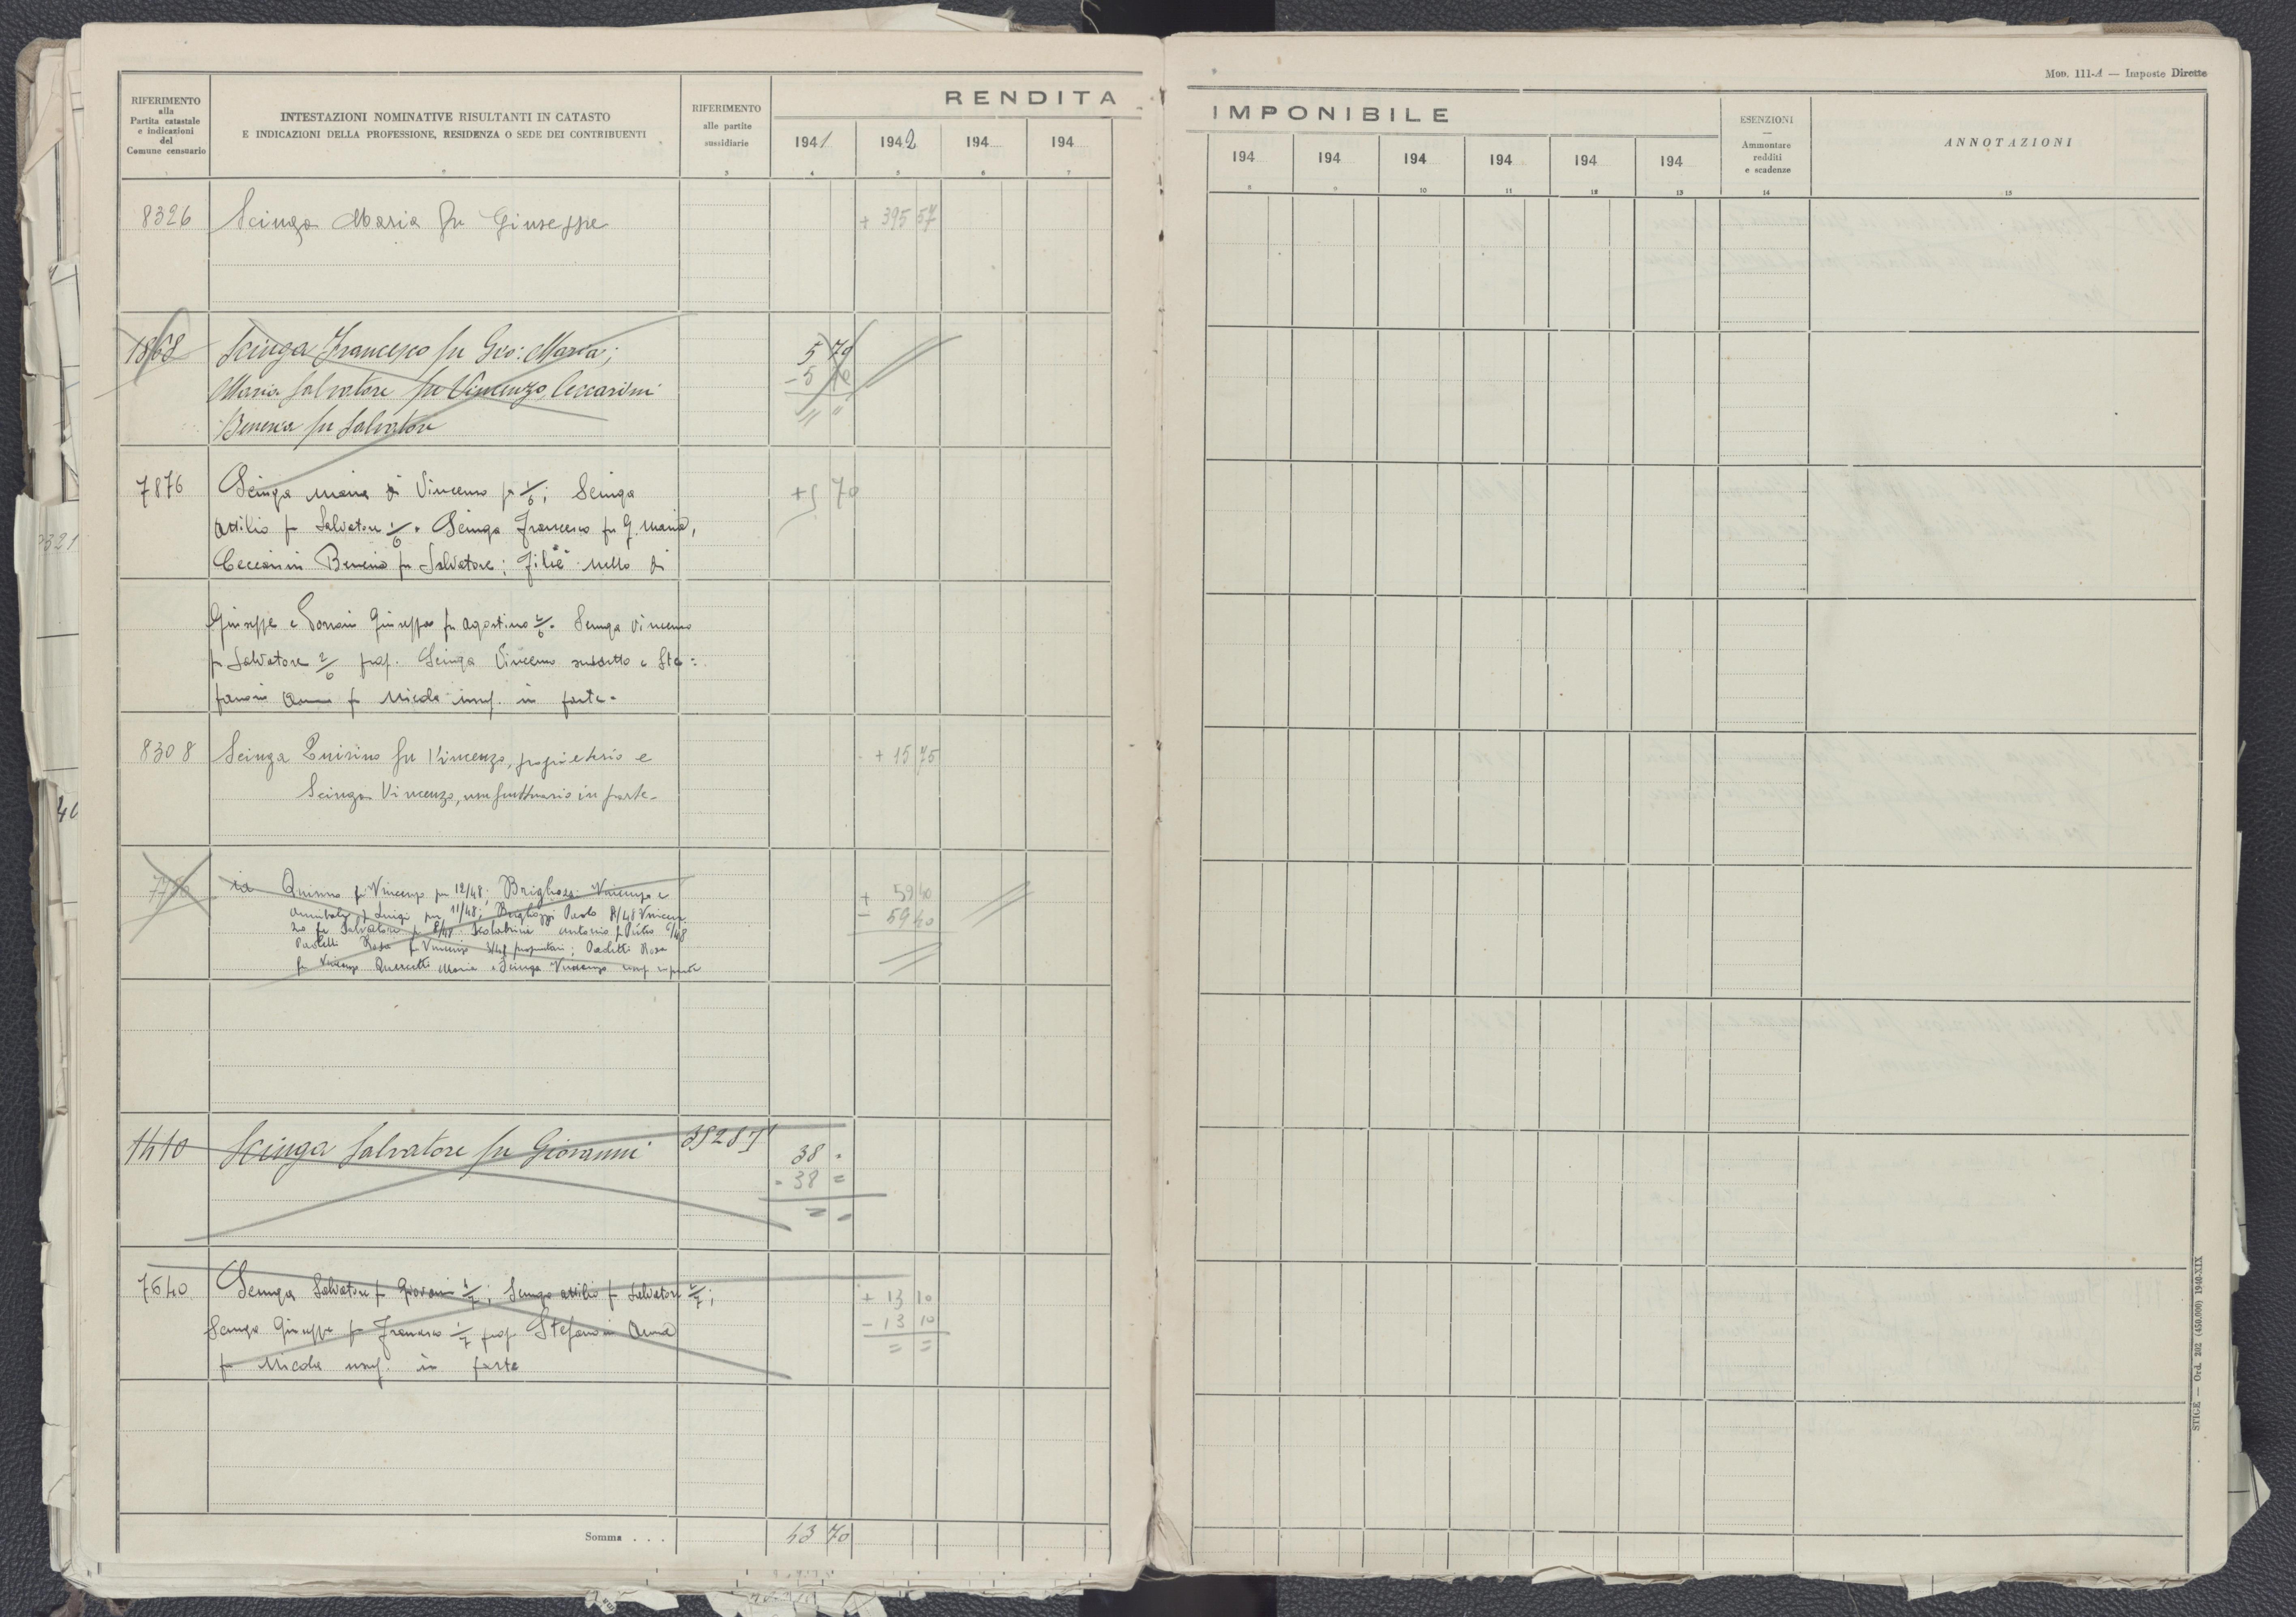 Mod. III-A — Imposte Dirette
RIFERIMENTO
alla
Partita catastale
e indicazioni
del
Comune censuario
INTESTAZIONI NOMINATIVE RISULTANTI IN CATASTO
E INDICAZIONI DELLA PROFESSIONE, RESIDENZA O SEDE DEI CONTRIBUENTI
RIFERIMENTO
alle partite
sussidiarie
RENDITA IMPONIBILE
1941 1942 194 194 194 194 194 194 194 194
ESENZIONI
—
Ammontare
redditi
e scadenze
ANNOTAZIONI
3 4 5 6 7 8 9 10 11 12 13 14 15
8326 Scinga Maria fu Giuseppe + 395 57
1868 Scinga Francesco fu Gio: Maria; 5 70
Maria Salvatore fu Vincenzo, Ceccarini - 5 70
Benenia fu Salvatore " "
7876 Scinga Maria di Vincenzo p 1/6; Scinga +5 70
Attilio fu Salvatore 1/6. Scinga Francesco fu G. Maria,
Ceccarini Benenia fu Salvatore; Filiè Nello di
Giuseppe e Giuseppe fu Agostino 2/6. Scinga Vincenzo
fu Salvatore 2/6 prop. Scinga Vincenzo suddetto e Ste=
fanoni Anna fu Nicola usuf. in parte.
8308 Scinga Quirino fu Vincenzo, proprietario e + 15 75
Scinga Vincenzo, usufruttuario in parte.
Quirino fu Vincenzo per 12/48; Brighozzi Vincenzo e + 59 40
Annibale fu Luigi per 11/48; Brighozzi Paolo 8/48 Vincen - 59 40
zo fu Salvatore p 8/48 Antonio fu Pietro 6/48
Paoletti Rosa fu Vincenzo 3/48 proprietari; Paoletti Rosa
fu Vincenzo Quercetti Maria e Scinga Vincenzo usuf. in parte
1410 Scinga Salvatore fu Giovanni 38 "
- 38 =
= =
7640 Scinga Salvatore fu Giovanni; Scinga Attilio fu Salvatore; + 13 10
Scinga Giuseppe fu Francesco 1/7 prop. Stefanoni Anna - 13 10
fu Nicola usuf. in parte = =
Somma . . . 43 70
STIGE — Ord. 202 (450.000) 1940-XIX